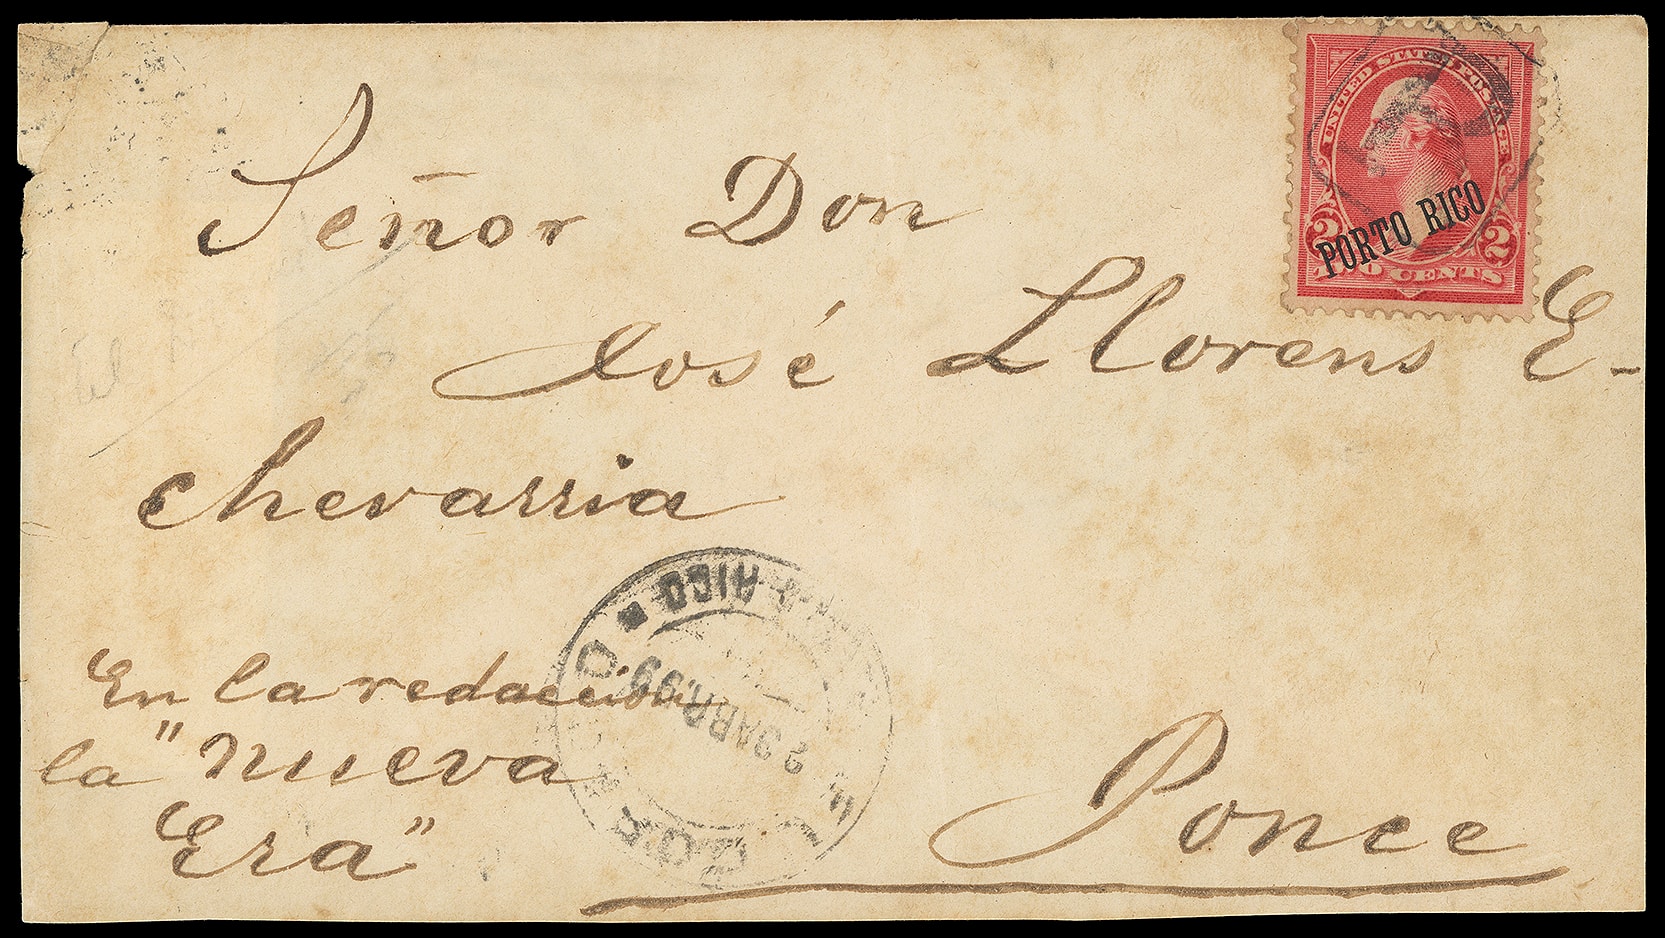 UNITED STATES POSTAGE
PORTO RICO
2 2
TWO CENTS
Señor Don
José Llorens E-
chevarria
En la redacción
la "nueva
Era"
Ponce
RICO
ABR. 99